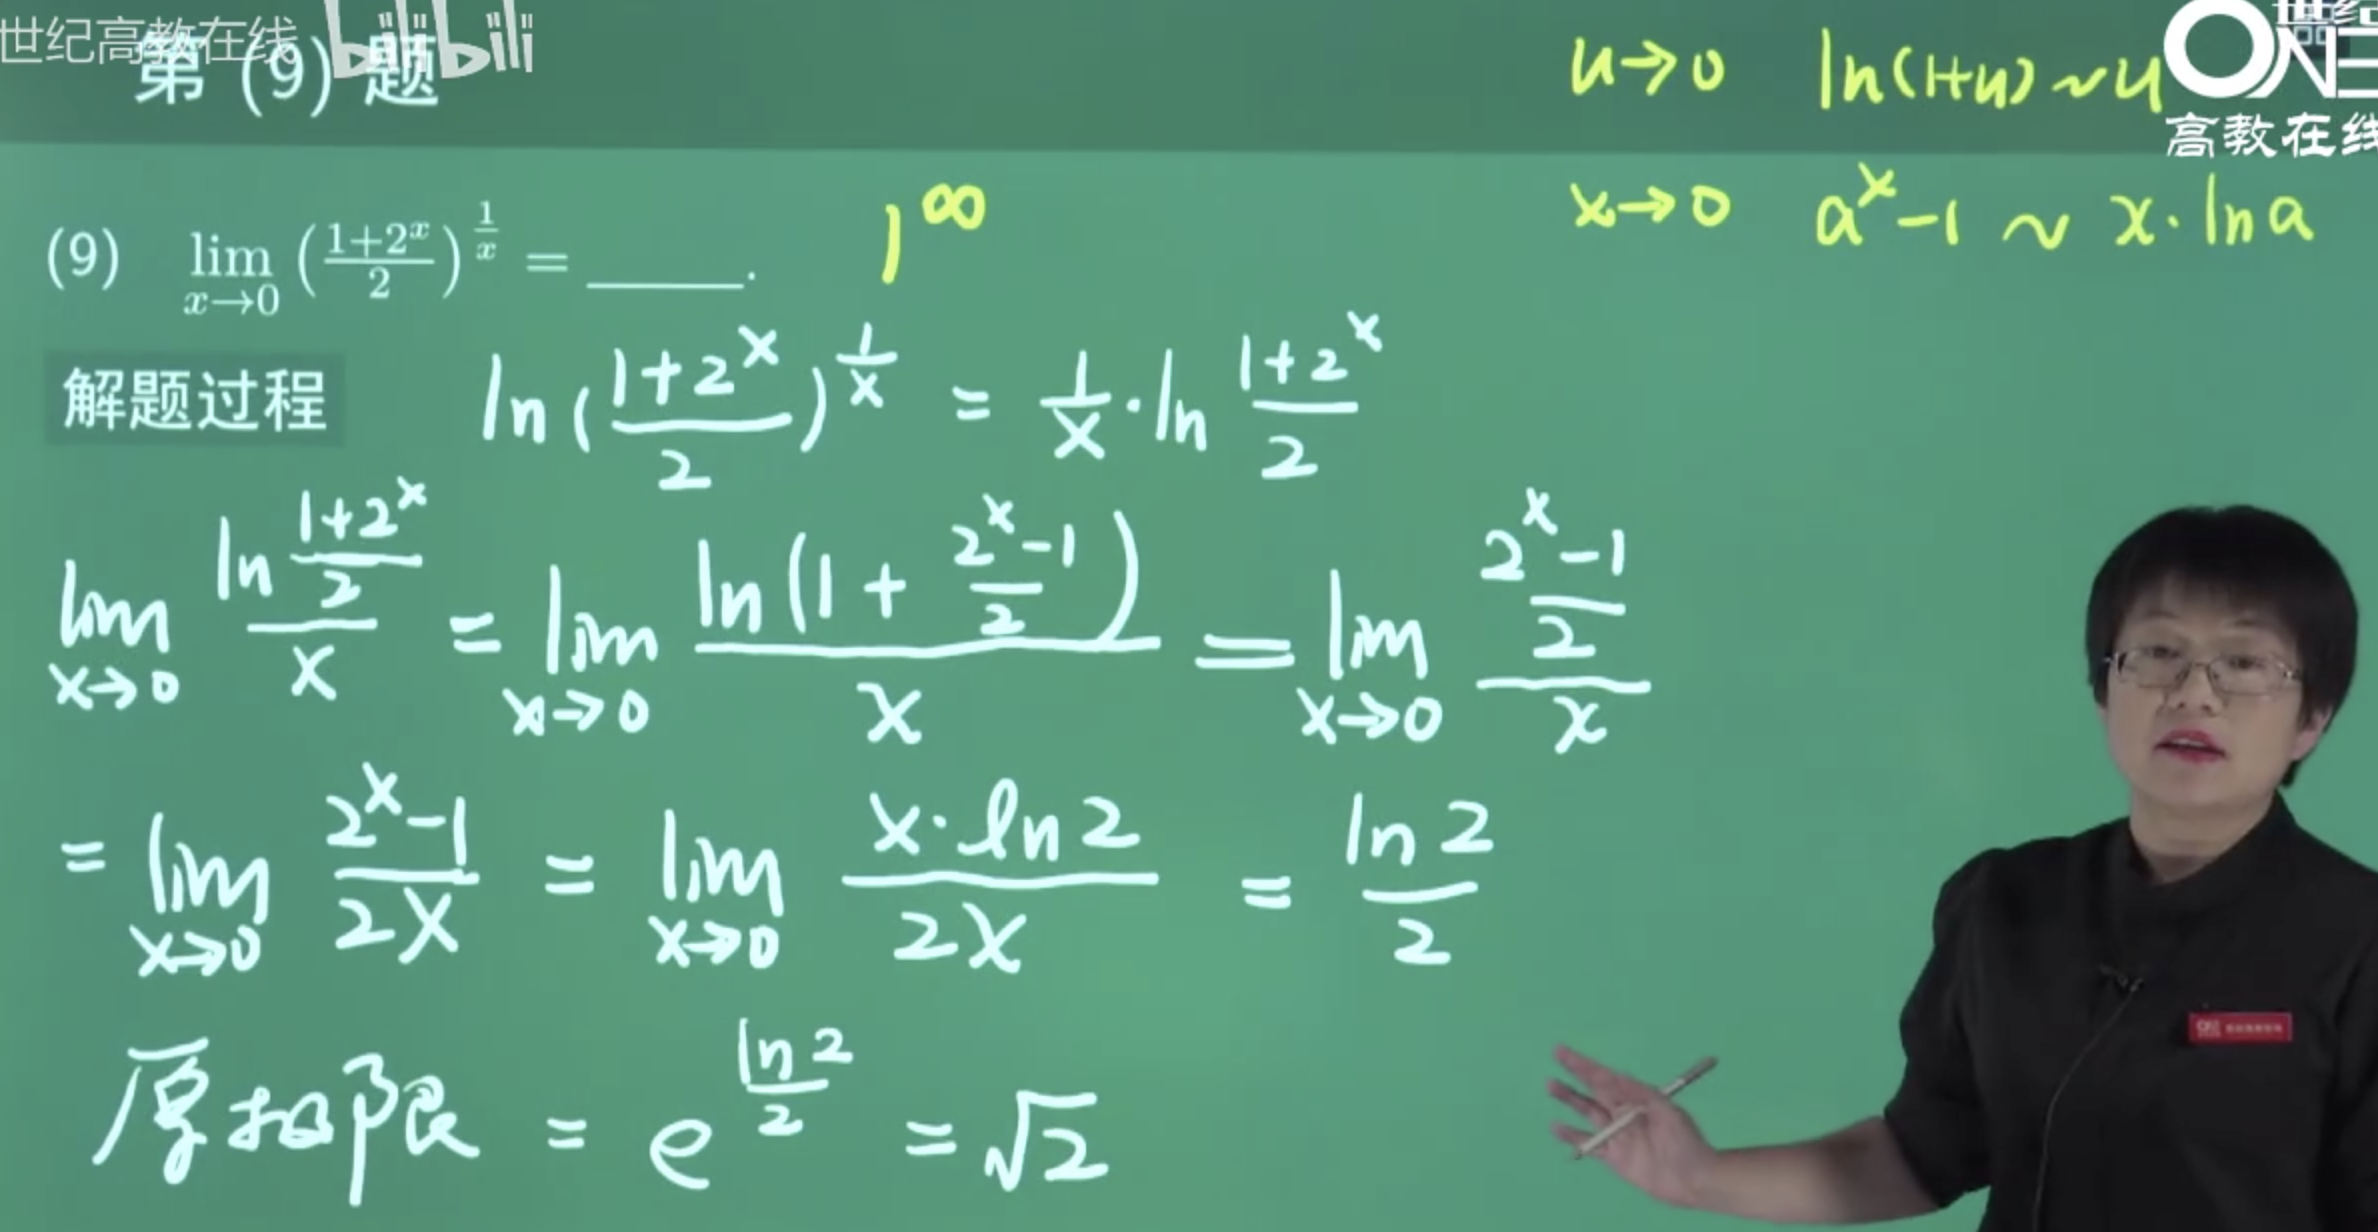 世纪高教在线 bilibili
第 (9) 题
u→0 ln(1+u)~u
ONE
高教在线
x→0 a^x-1 ~ x·ln a
(9) lim_{x→0} (\frac{1+2^x}{2})^{\frac{1}{x}} = ______. 1^∞
解题过程 ln(\frac{1+2^x}{2})^{\frac{1}{x}} = \frac{1}{x}·ln\frac{1+2^x}{2}
lim_{x→0} \frac{ln\frac{1+2^x}{2}}{x} = lim_{x→0} \frac{ln(1+\frac{2^x-1}{2})}{x} = lim_{x→0} \frac{\frac{2^x-1}{2}}{x}
= lim_{x→0} \frac{2^x-1}{2x} = lim_{x→0} \frac{x·ln2}{2x} = \frac{ln2}{2}
原极限 = e^{\frac{ln2}{2}} = √2